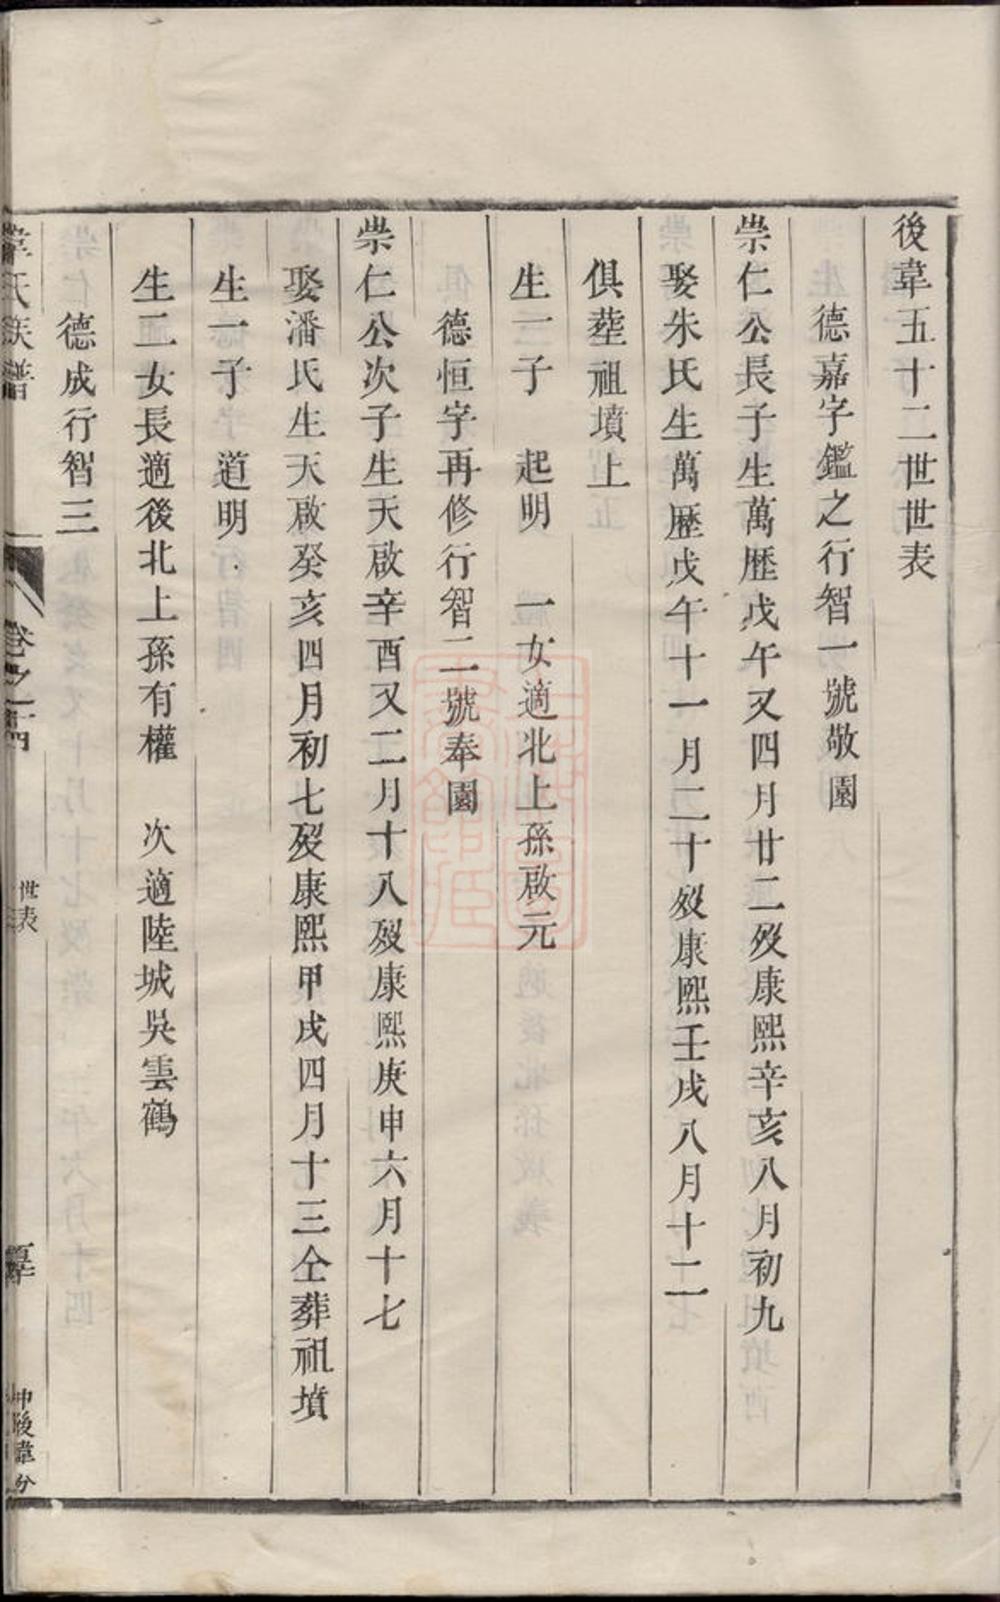 後韋五十二世世表
德嘉字鑑之行智一號敬園
崇仁公長子生萬歷戊午又四月廿二殁康熙辛亥八月初九
娶朱氏生萬歷戊午十一月二十殁康熙壬戌八月十二
俱塟祖墳上
生一子 起明 一女適北上孫啟元
德恒字再修行智二號奉園
崇仁公次子生天啟辛酉又二月十八殁康熙庚申六月十七
娶潘氏生天啟癸亥四月初七殁康熙甲戌四月十三仝葬祖墳
生一子 道明
生二女長適後北上孫有權 次適陸城吳雲鶴
德成行智三
韋氏族譜 卷之十四 世表 後韋分